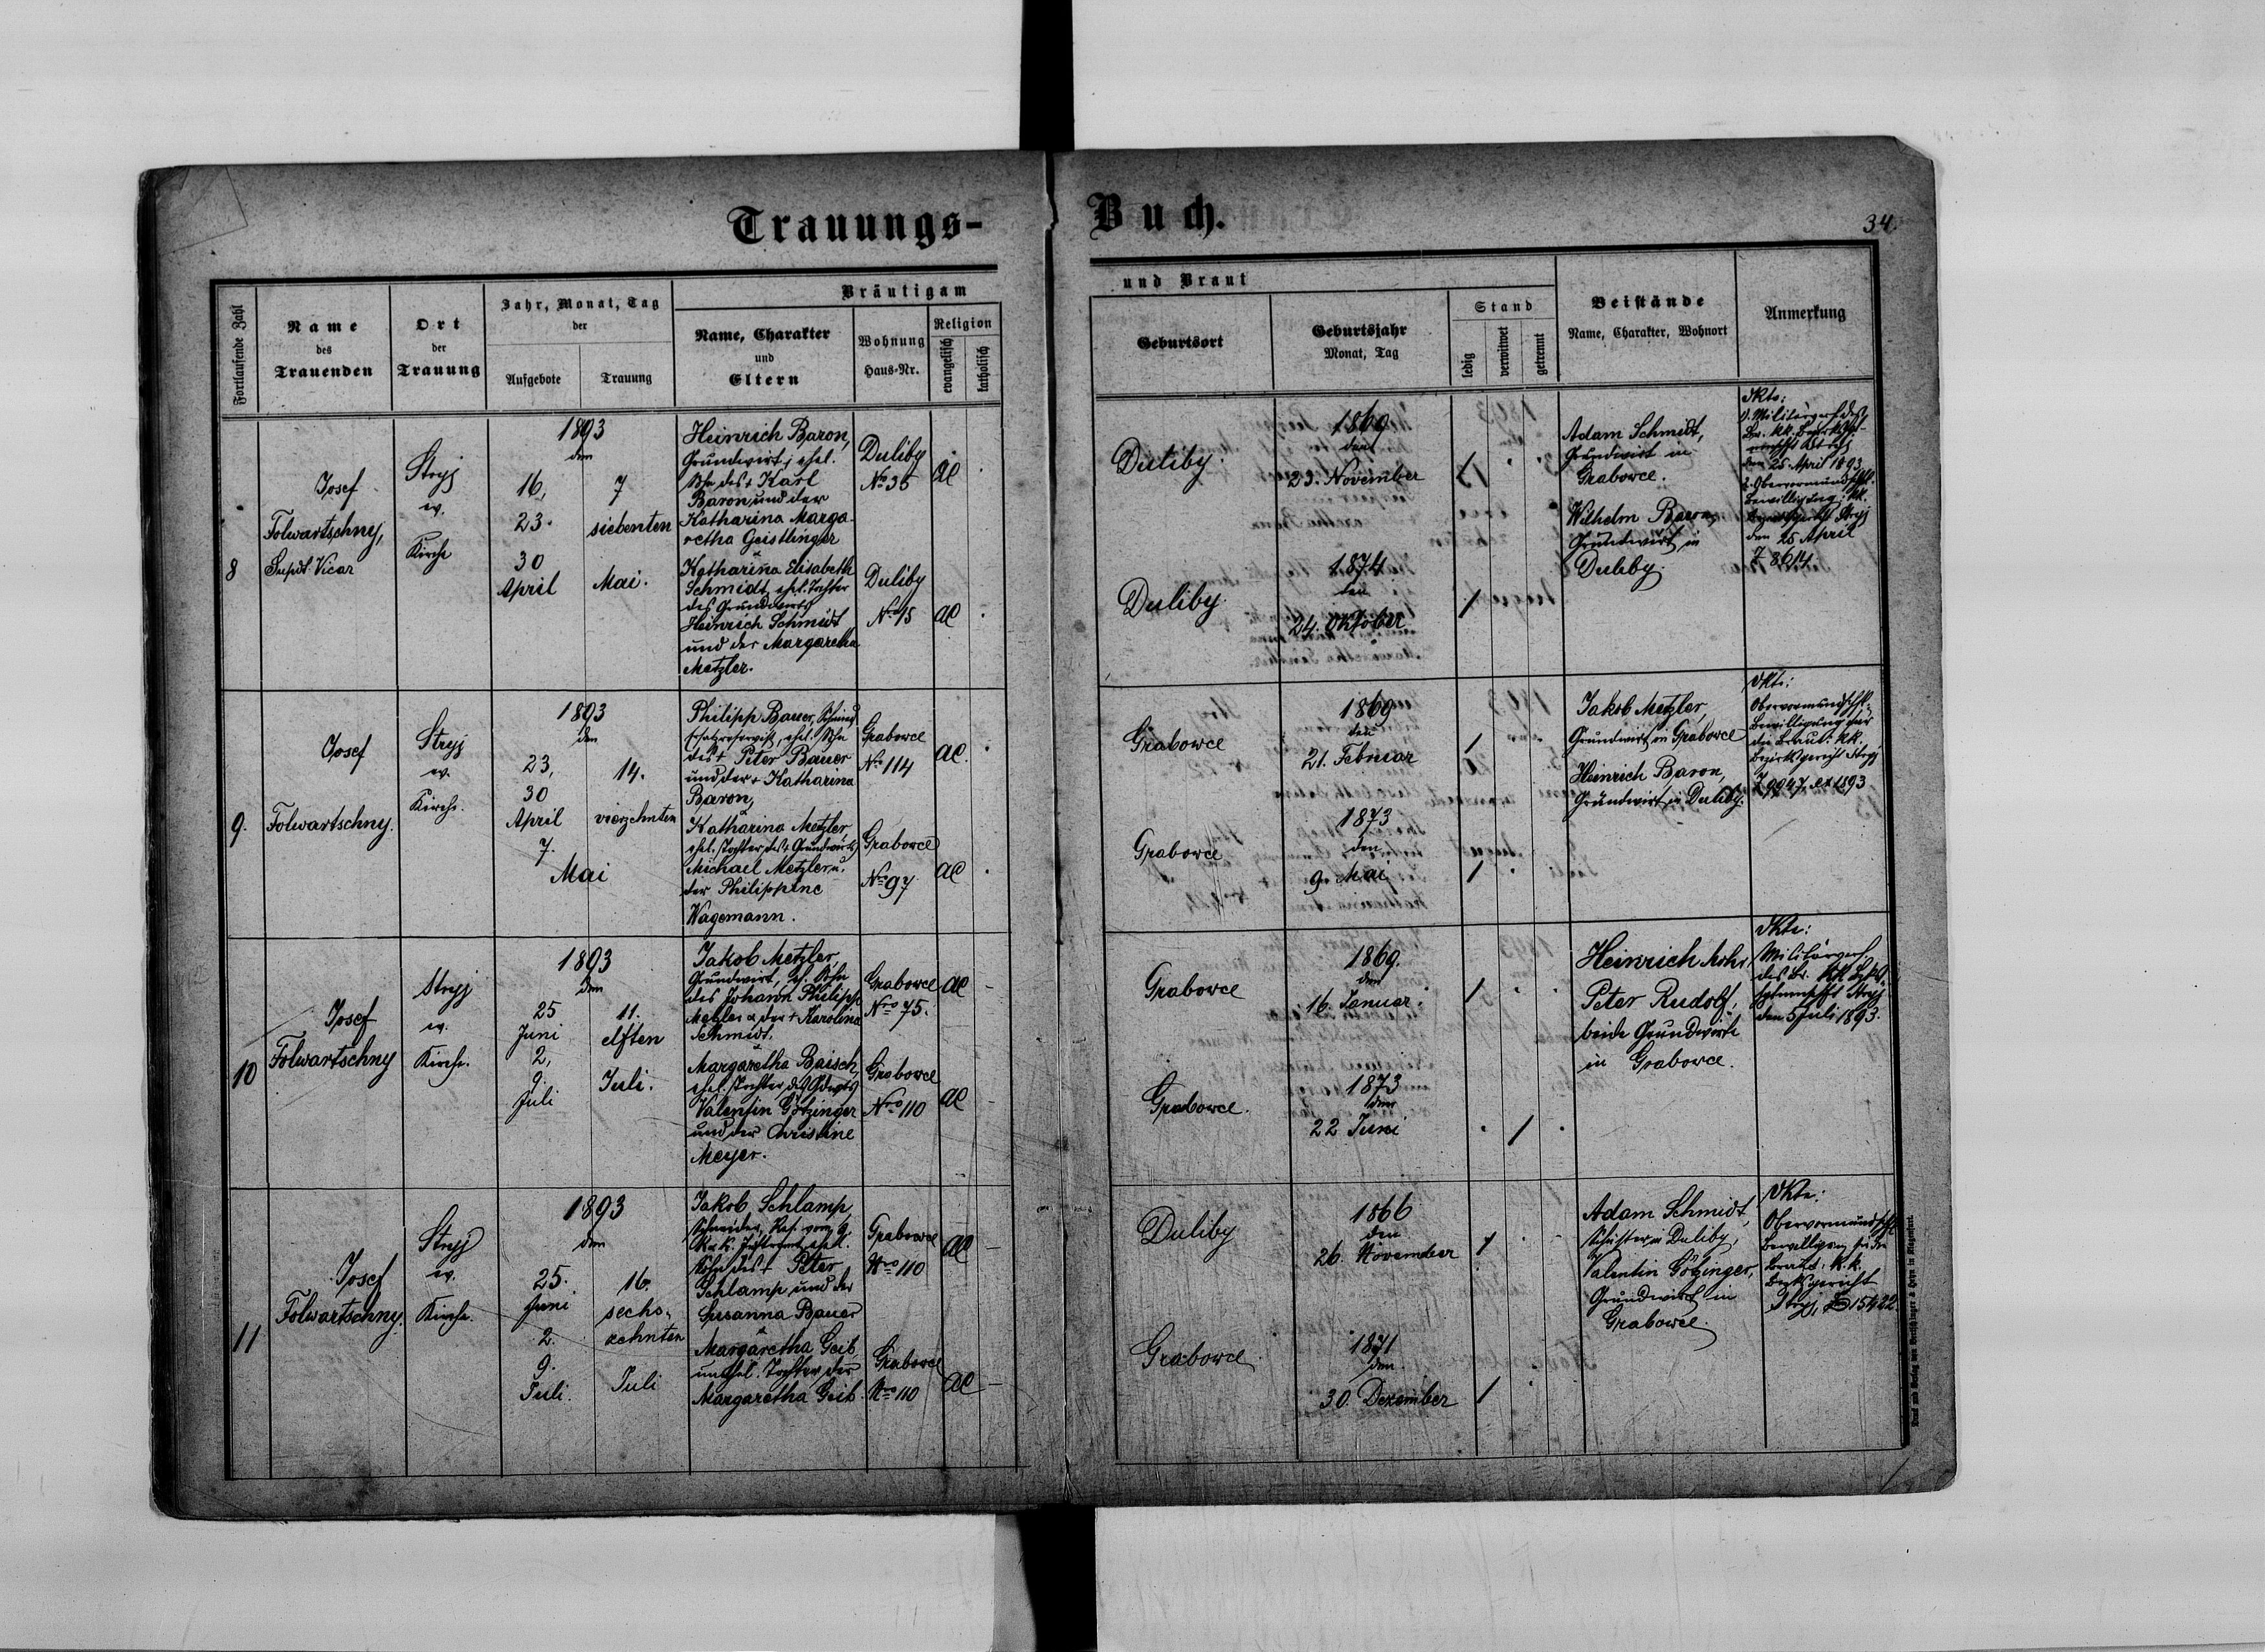 Trauungs-Buch.
34.
Bräutigam und Braut
Fortlaufende Zahl
Name
des
Trauenden
Ort
der
Trauung
Jahr, Monat, Tag
der
Aufgebote
Trauung
Name, Charakter
und
Eltern
Wohnung
Haus-Nr.
Religion
evangelisch
katholisch
Geburtsort
Geburtsjahr
Monat, Tag
Stand
ledig
verwitwet
getrennt
Beistände
Name, Charakter, Wohnort
Anmerkung
8
Josef
Folwartschny,
Supdt. Vicar
Stryj
ev.
Kirche
1893
den
16,
23.
30
April
7
siebenten
Mai.
Heinrich Baron,
Grundwirt, ehel.
Sohn des + Karl
Baron und der
Katharina Marga-
retha Geistlinger
u
Katharina Elisabeth
Schmidt, ehel. Tochter
des Grundwirts
Heinrich Schmidt
und der Margaretha
Metzler.
Duliby
No 36
AC
Duliby
No 15
AC
Duliby.
1869
den
23. November
1
Duliby.
1874
den
24. Oktober
1
Adam Schmidt,
Grundwirt in
Grabowce.
Wilhelm Baron,
Grundwirt in
Duliby.
den 25. April 1893
2. Obervormundschftl.
Bewilligung: kk.
Bezirksgericht Stryj
den 25 April
Z 8614
9.
Josef
Folwartschny.
Stryj
ev.
Kirche.
1893
den
23,
30
April
7.
Mai
14.
vierzehnten
Philipp Bauer, Schmied
Ersatzreservist, ehel. Sohn
des + Peter Bauer
und der + Katharina
Baron,
u
Katharina Metzler
ehel. Tochter des + Grundwirts
Michael Metzler u.
der Philippine
Wagemann.
Grabowce
No 114
AC.
Grabowce
No 97
AC
Grabowce
1869
den
21. Februar
1
Grabowce
1873
den
9. Mai
1
Jakob Metzler,
Grundwirt in Grabowce
Heinrich Baron,
Grundwirt in Duliby.
Obervormundschftl.
Bewilligung für
die Braut: kk.
Bezirksgericht Stryj
Z 9947 ex 1893
10
Josef
Folwartschny
Stryj
ev.
Kirche.
1893
den
25
Juni
2,
9.
Juli
11.
elften
Juli.
Jakob Metzler,
Grundwirt, eh. Sohn
des Johann Philipp
Metzler u der + Karolina
Schmidt.
u
Margaretha Baisch,
ehel. Tochter des Gdwirts
Valentin Götzinger
und der Christine
Meyer.
Grabowce
No 75.
AC
Grabowce
Nro 110
AC
Grabowce
1869.
den
16. Januar.
1
Grabowce.
1873
den
22 Juni
1
Heinrich
Peter Rudolf,
beide Grundwirte
in Grabowce.
des
Stryj
den 5 Juli 1893.
11
Josef
Folwartschny.
Stryj
ev.
Kirche.
1893
den
25.
Juni
2.
9.
Juli.
16.
sechs-
zehnten
Juli
Jakob Schlamp,
Schneider, Res. vom 9.
ehel.
Sohn des + Peter
Schlamp und der
Susanna Bauer
u
Margaretha Geib,
unehel. Tochter der
Margaretha Geib.
Grabowce
Nro 110
AC
Grabowce
Nro 110
AC
Duliby
1866
den
26. November
1
Grabowce.
1871
den
30. Dezember
1
Adam Schmidt,
Schuster in Duliby,
Valentin Götzinger,
Grundwirt in
Grabowce.
Obervormundschftl
Bewilligung für die
Braut: K.k.
Bezksgericht
Stryj, 15422.